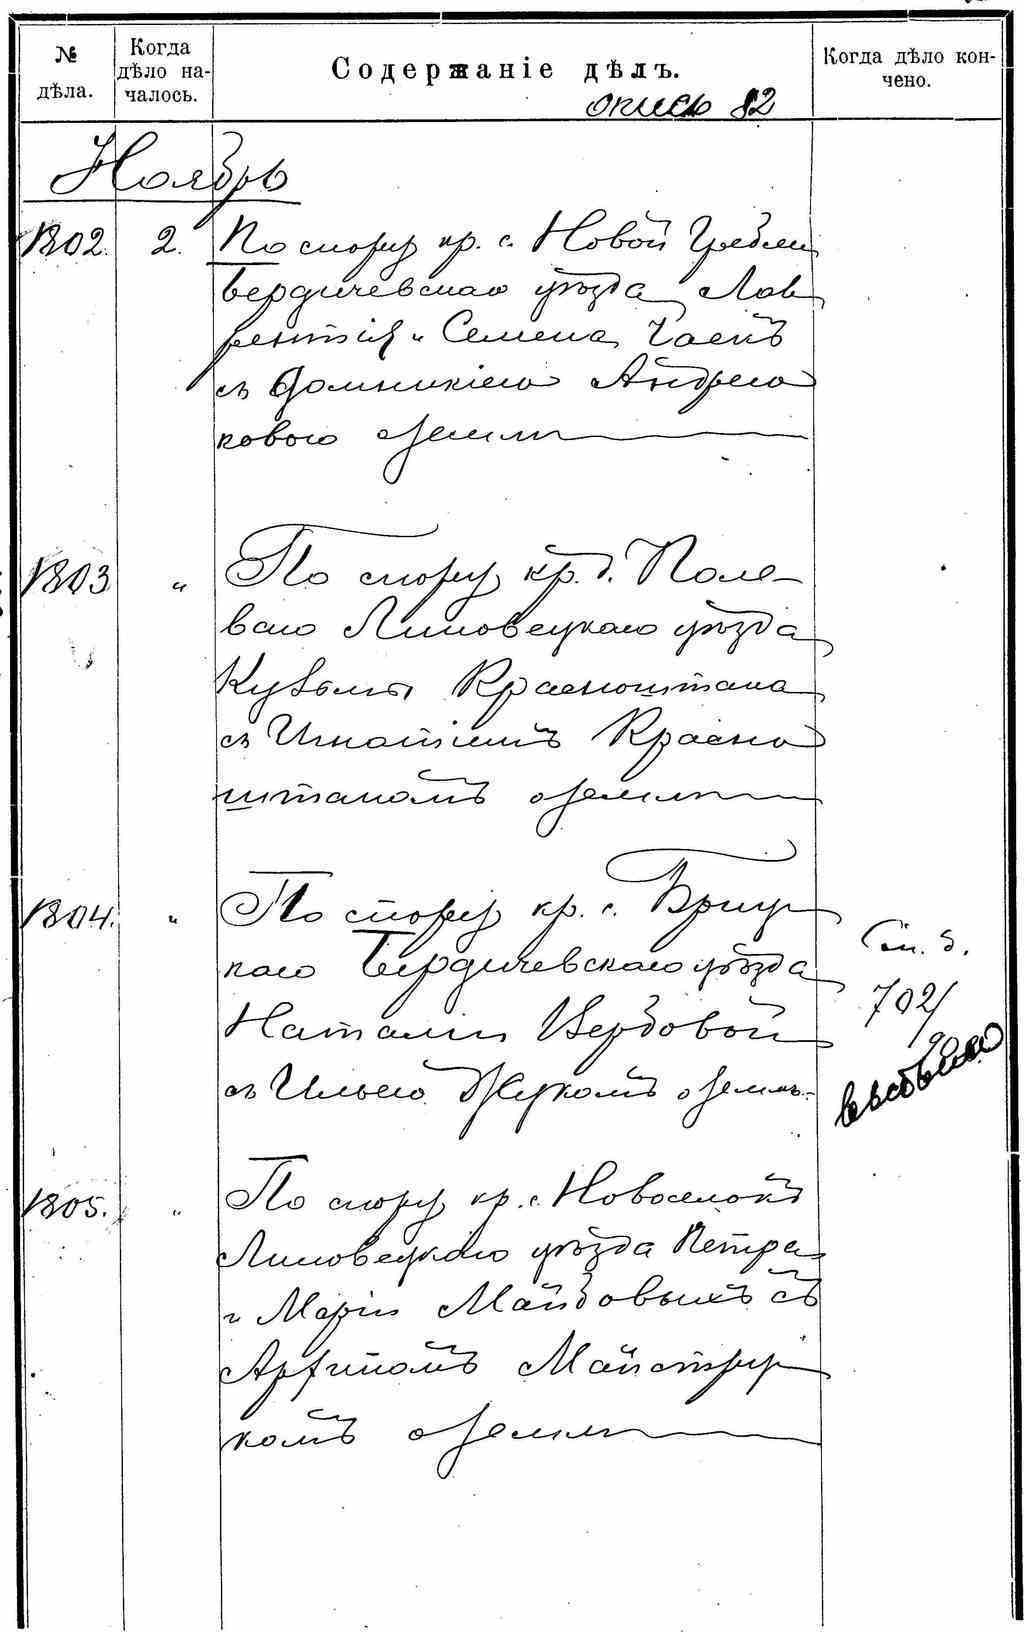 № дѣла.
Когда дѣло на-
чалось.
Содержаніе дѣлъ.
Когда дѣло кон-
чено.
опись 82
Ноябрь
1802. 2. По спору кр. с. Новой Гребли
Бердичевскаго уѣзда Лав
рентія и Семена Чаекъ
съ Домникіею Андрею
ковою о землѣ
1803 " По спору кр. д. Поле-
ваго Липовецкаго уѣзда
Кузьмы Красноштана
съ Игнатіемъ Красно
штаномъ о землѣ
1804. " По спору кр. с. Бриц
каго Бердичевскаго уѣзда
Наталіи Вербовой
съ Ильею Жукомъ о землѣ.
См. д.
702/
1805. " По спору кр. с. Новоселокъ
Липовецкаго уѣзда Петра
и Маріи Майдовыхъ съ
Архипомъ Майструк
комъ о землѣ